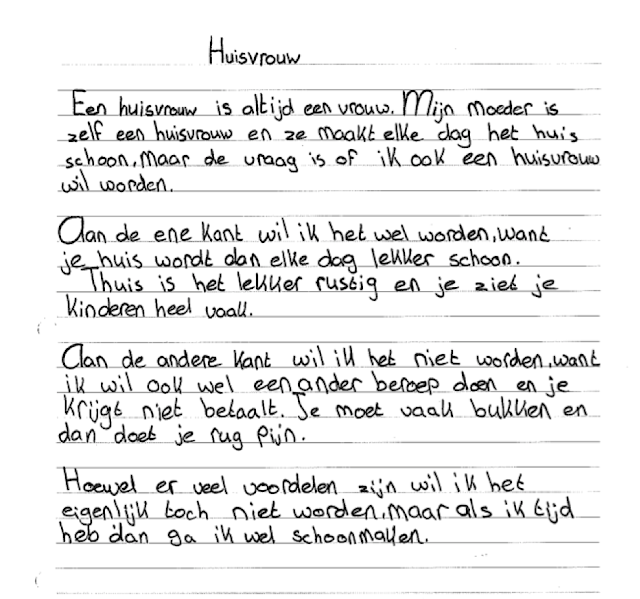 Huisvrouw
Een huisvrouw is altijd een vrouw. Mijn moeder is
zelf een huisvrouw en ze maakt elke dag het huis
schoon, maar de vraag is of ik ook een huisvrouw
wil worden.
Aan de ene kant wil ik het wel worden, want
je huis wordt dan elke dag lekker schoon.
Thuis is het lekker rustig en je ziet je
kinderen heel vaak.
Aan de andere kant wil ik het niet worden, want
ik wil ook wel een ander beroep doen en je
krijgt niet betaalt. Je moet vaak bukken en
dan doet je rug pijn.
Hoewel er veel voordelen zijn wil ik het
eigenlijk toch niet worden, maar als ik tijd
heb dan ga ik wel schoonmaken.